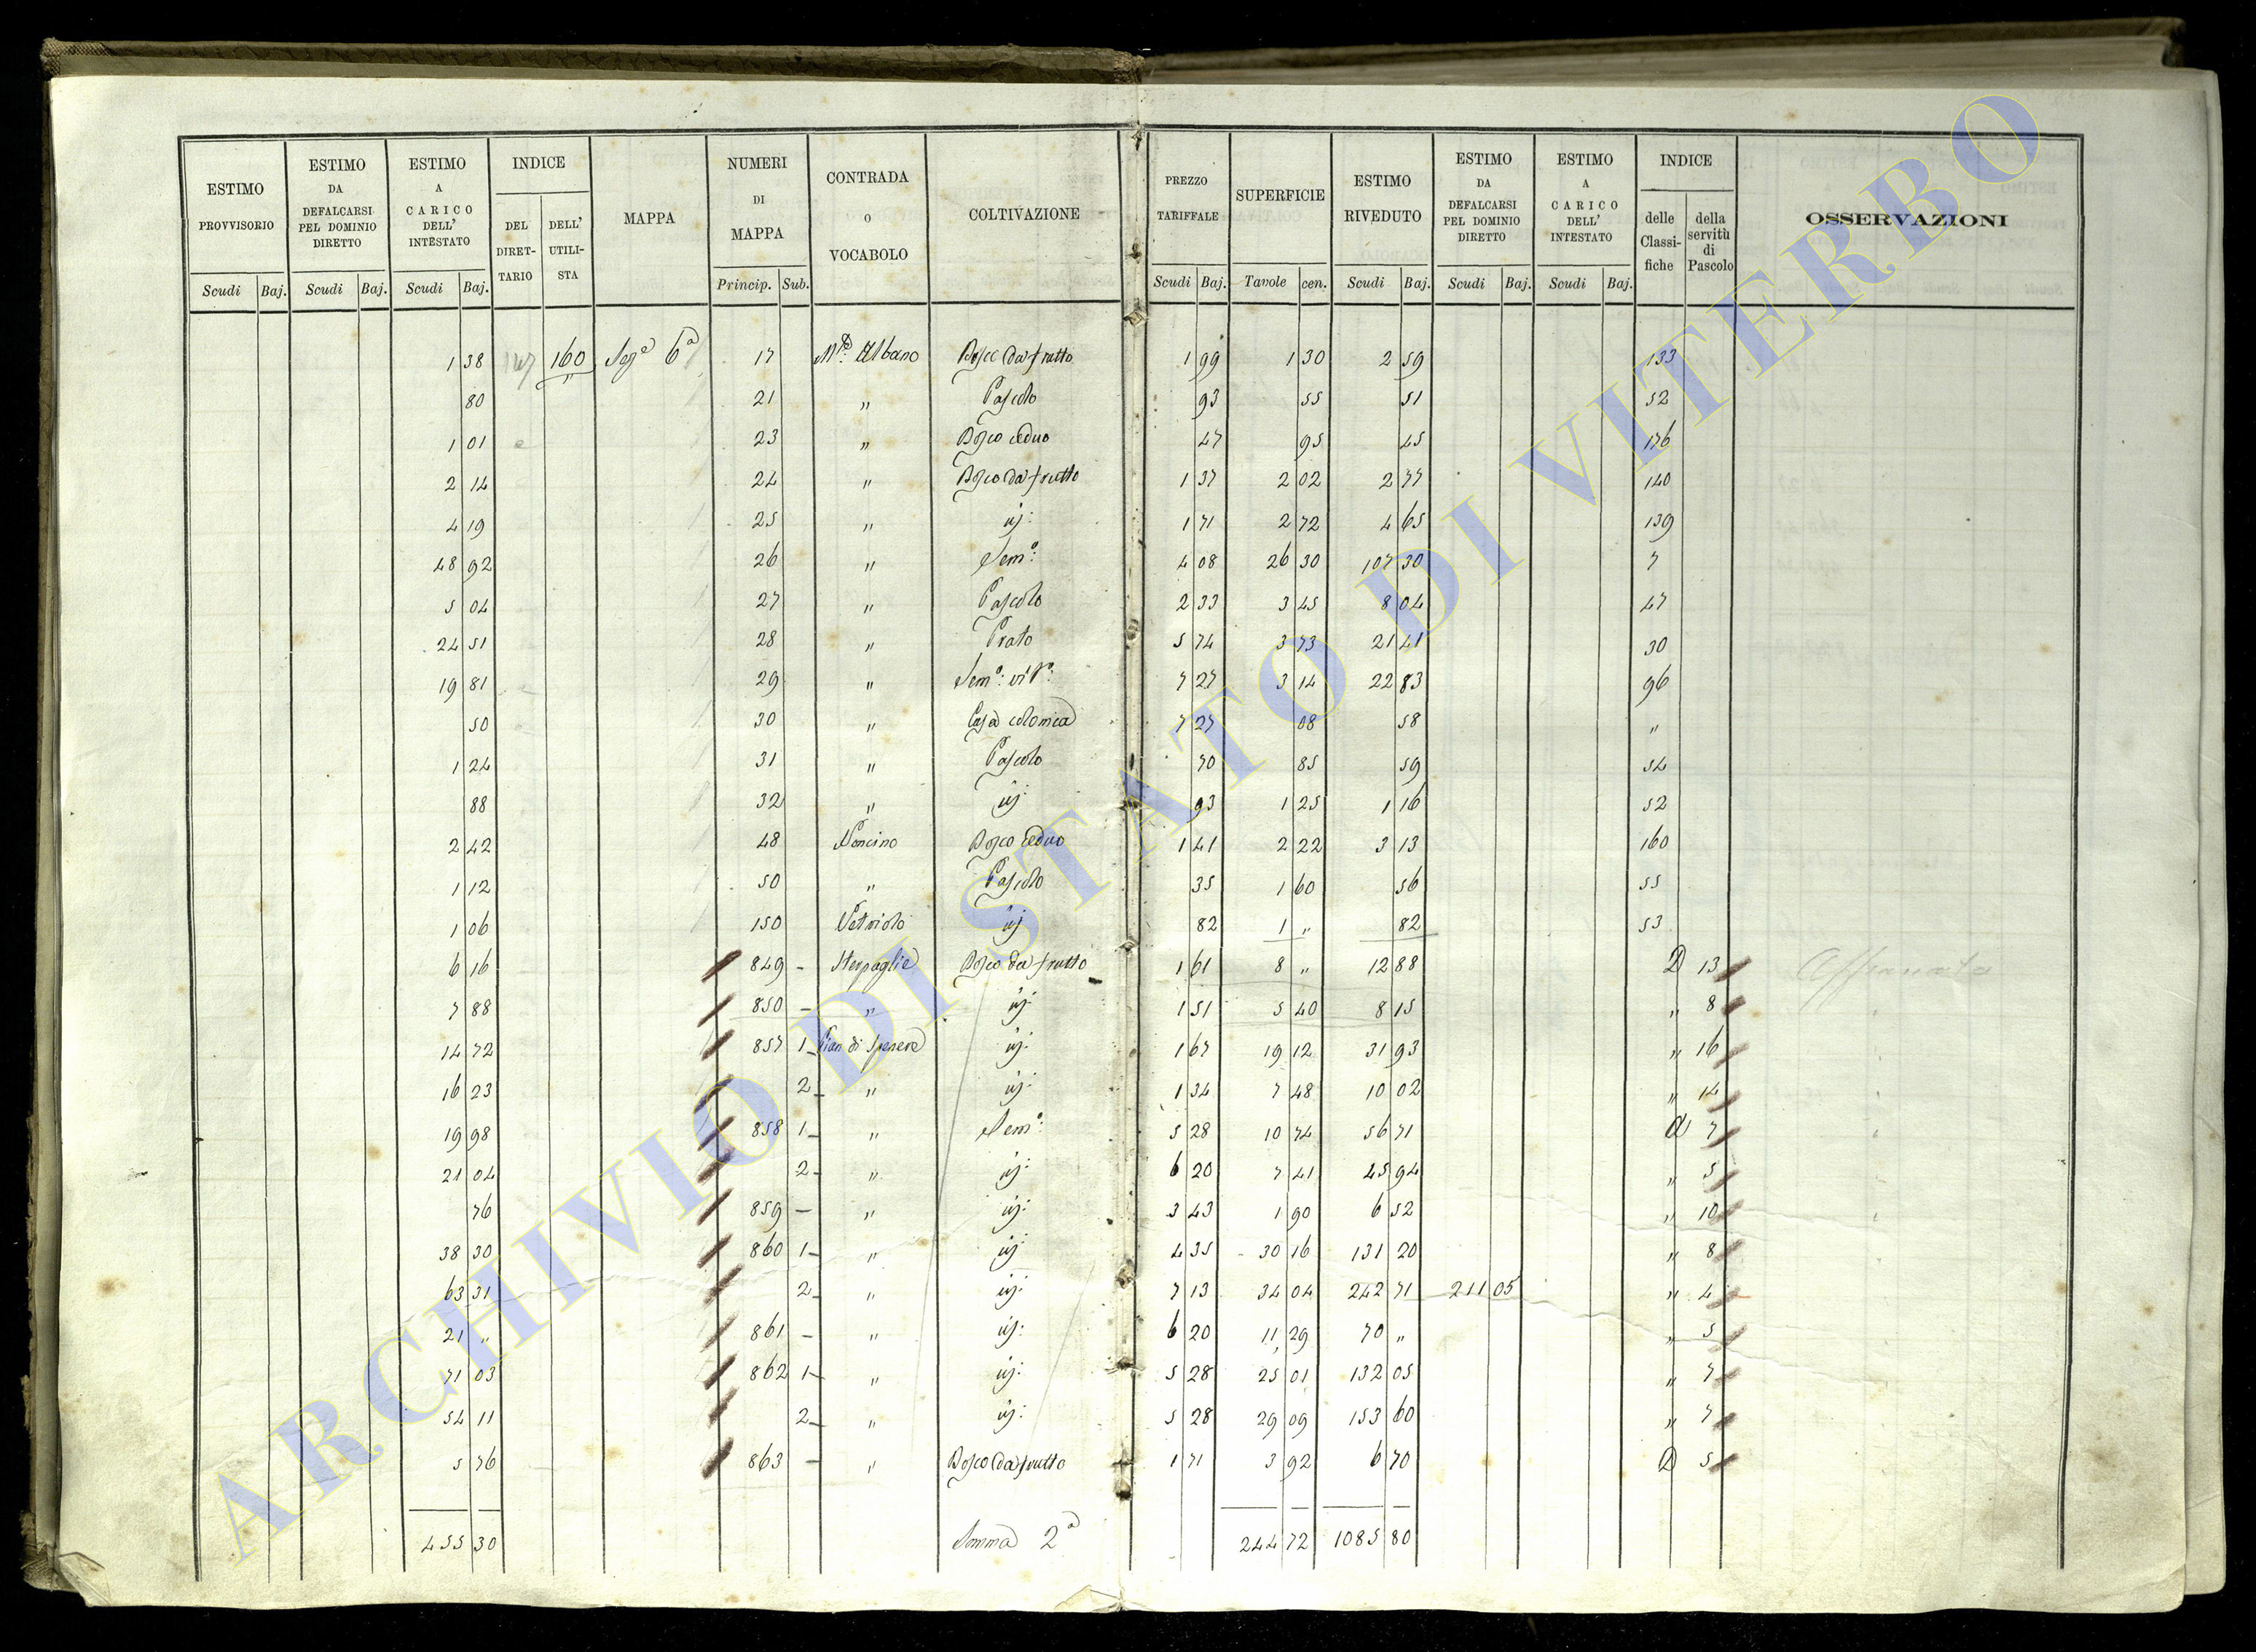 ESTIMO PROVVISORIO Scudi Baj. | ESTIMO DA DEFALCARSI PEL DOMINIO DIRETTO Scudi Baj. | ESTIMO A CARICO DELL' INTESTATO Scudi Baj. | INDICE DEL DIRET-TARIO | DELL' UTILI-STA | MAPPA | NUMERI DI MAPPA Princip. Sub. | CONTRADA O VOCABOLO | COLTIVAZIONE | PREZZO TARIFFALE Scudi Baj. | SUPERFICIE Tavole cen. | ESTIMO RIVEDUTO Scudi Baj. | ESTIMO DA DEFALCARSI PEL DOMINIO DIRETTO Scudi Baj. | ESTIMO A CARICO DELL' INTESTATO Scudi Baj. | INDICE delle Classi-fiche | della servitù di Pascolo | OSSERVAZIONI
1 38 160 Sez.e 6a 17 M.te Albano Bosco da frutto 1 99 1 30 2 59 133
80 21 " Pascolo 93 55 51 52
1 01 23 " Bosco ceduo 47 95 45 176
2 14 24 " Bosco da frutto 1 37 2 02 2 77 140
4 19 25 " id: 1 71 2 72 4 65 139
48 92 26 " Sem.o: 4 08 26 30 107 30 7
5 04 27 " Pascolo 2 33 3 45 8 04 47
24 51 28 " Prato 5 74 3 73 21 41 30
19 81 29 " Sem.o: vit.o: 7 27 3 14 22 83 96
50 30 " Casa colonica 7 27 08 58 "
1 24 31 " Pascolo 70 85 59 54
88 32 " id: 93 1 25 1 16 52
2 42 48 Noncino Bosco ceduo 1 41 2 22 3 13 160
1 12 50 " Pascolo 35 1 60 56 55
1 06 150 Petriolo id 82 1 " 82 53
6 16 849 - Sterpaglie Bosco da frutto 1 61 8 " 12 88 D 13
7 88 850 - " id: 1 51 5 40 8 15 " 8
14 72 857 1 Pian di id: 1 67 19 12 31 93 " 16
16 23 2 " id: 1 34 7 48 10 02 " 14
19 98 858 1 " Sem.o: 5 28 10 74 56 71 a 7
21 04 2 " id: 6 20 7 41 45 94 " 5
76 859 - " id: 3 43 1 90 6 52 " 10
38 30 860 1 " id: 4 35 30 16 131 20 " 8
63 31 2 " id: 7 13 34 04 242 71 211 05 " 4
21 " 861 - " id: 6 20 11 29 70 " " 5
71 03 862 1 " id: 5 28 25 01 132 05 " 7
54 11 2 " id: 5 28 29 09 153 60 " 7
5 76 863 - " Bosco da frutto 1 71 3 92 6 70 D 5
455 30 Somma 2a 244 72 1085 80
ARCHIVIO DI STATO DI VITERBO